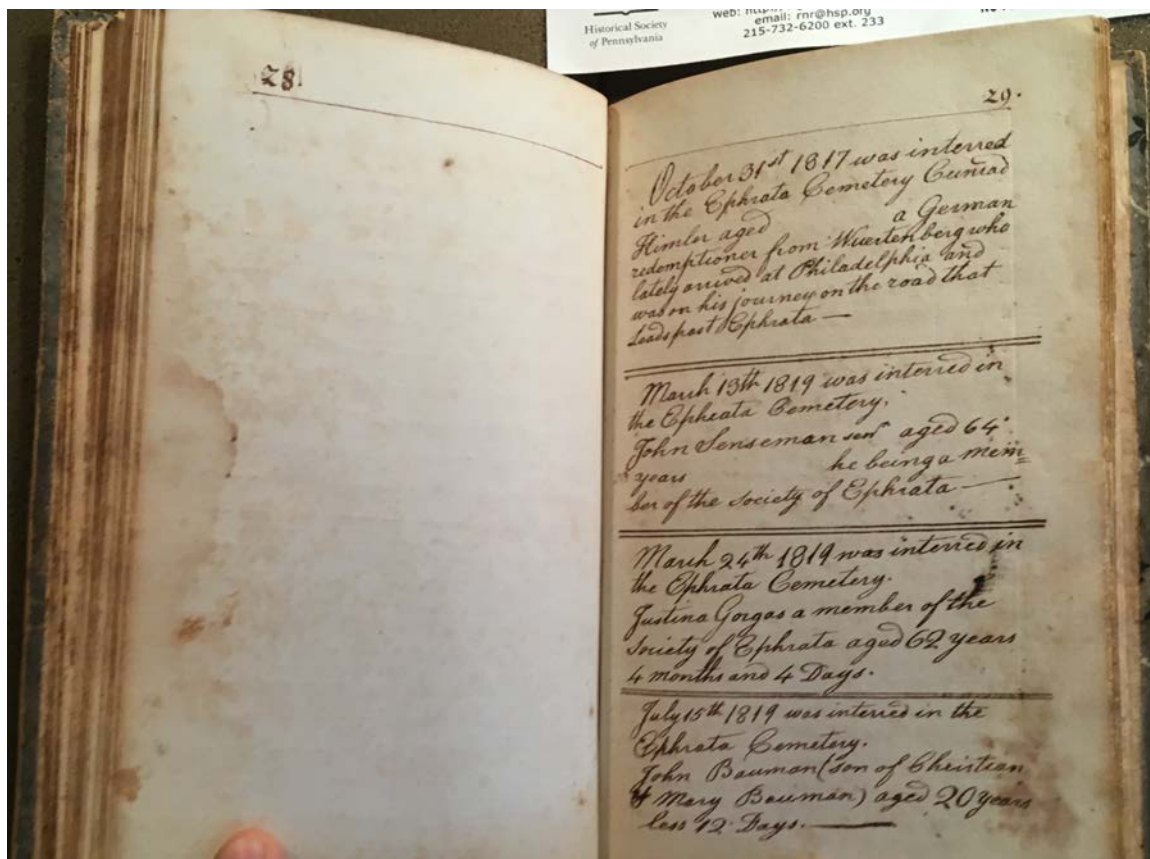 Historical Society
of Pennsylvania
email: rnr@hsp.org
215-732-6200 ext. 233
28
29.
October 31st 1817 was interred
in the Ephrata Cemetery Cunrad
Himler aged a German
redemptioner from Wuertenberg who
lately arrived at Philadelphia and
was on his journey on the road that
Leads past Ephrata —
March 13th 1819 was interred in
the Ephrata Cemetery.
John Senseman senr aged 64
years he being a mem=
ber of the society of Ephrata —
March 24th 1819 was interred in
the Ephrata Cemetery.
Justina Gorgas a member of the
society of Ephrata aged 62 years
4 months and 4 Days.
July 15th 1819 was interred in the
Ephrata Cemetery.
John Bauman (son of Christian
& Mary Bauman) aged 20 years
less 12 Days. —